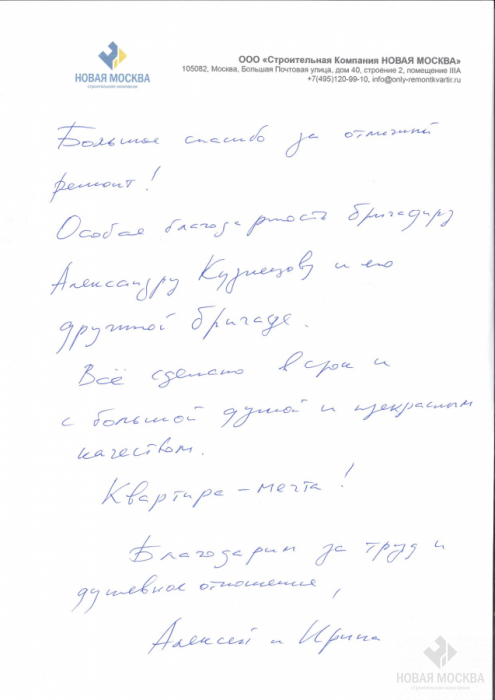 ООО «Строительная Компания НОВАЯ МОСКВА»
105082, Москва, Большая Почтовая улица, дом 40, строение 2, помещение IIIА
+7(495)120-99-10, info@only-remontkvartir.ru
НОВАЯ МОСКВА
строительная компания
Большое спасибо за отличный
ремонт!
Особая благодарность бригадиру
Александру Кузнецову и его
дружной бригаде.
Всё сделано в срок и
с большой душой и прекрасным
качеством.
Квартира – мечта!
Благодарим за труд и
душевное отношение,
Алексей и Ирина
НОВАЯ МОСКВА
строительная компания